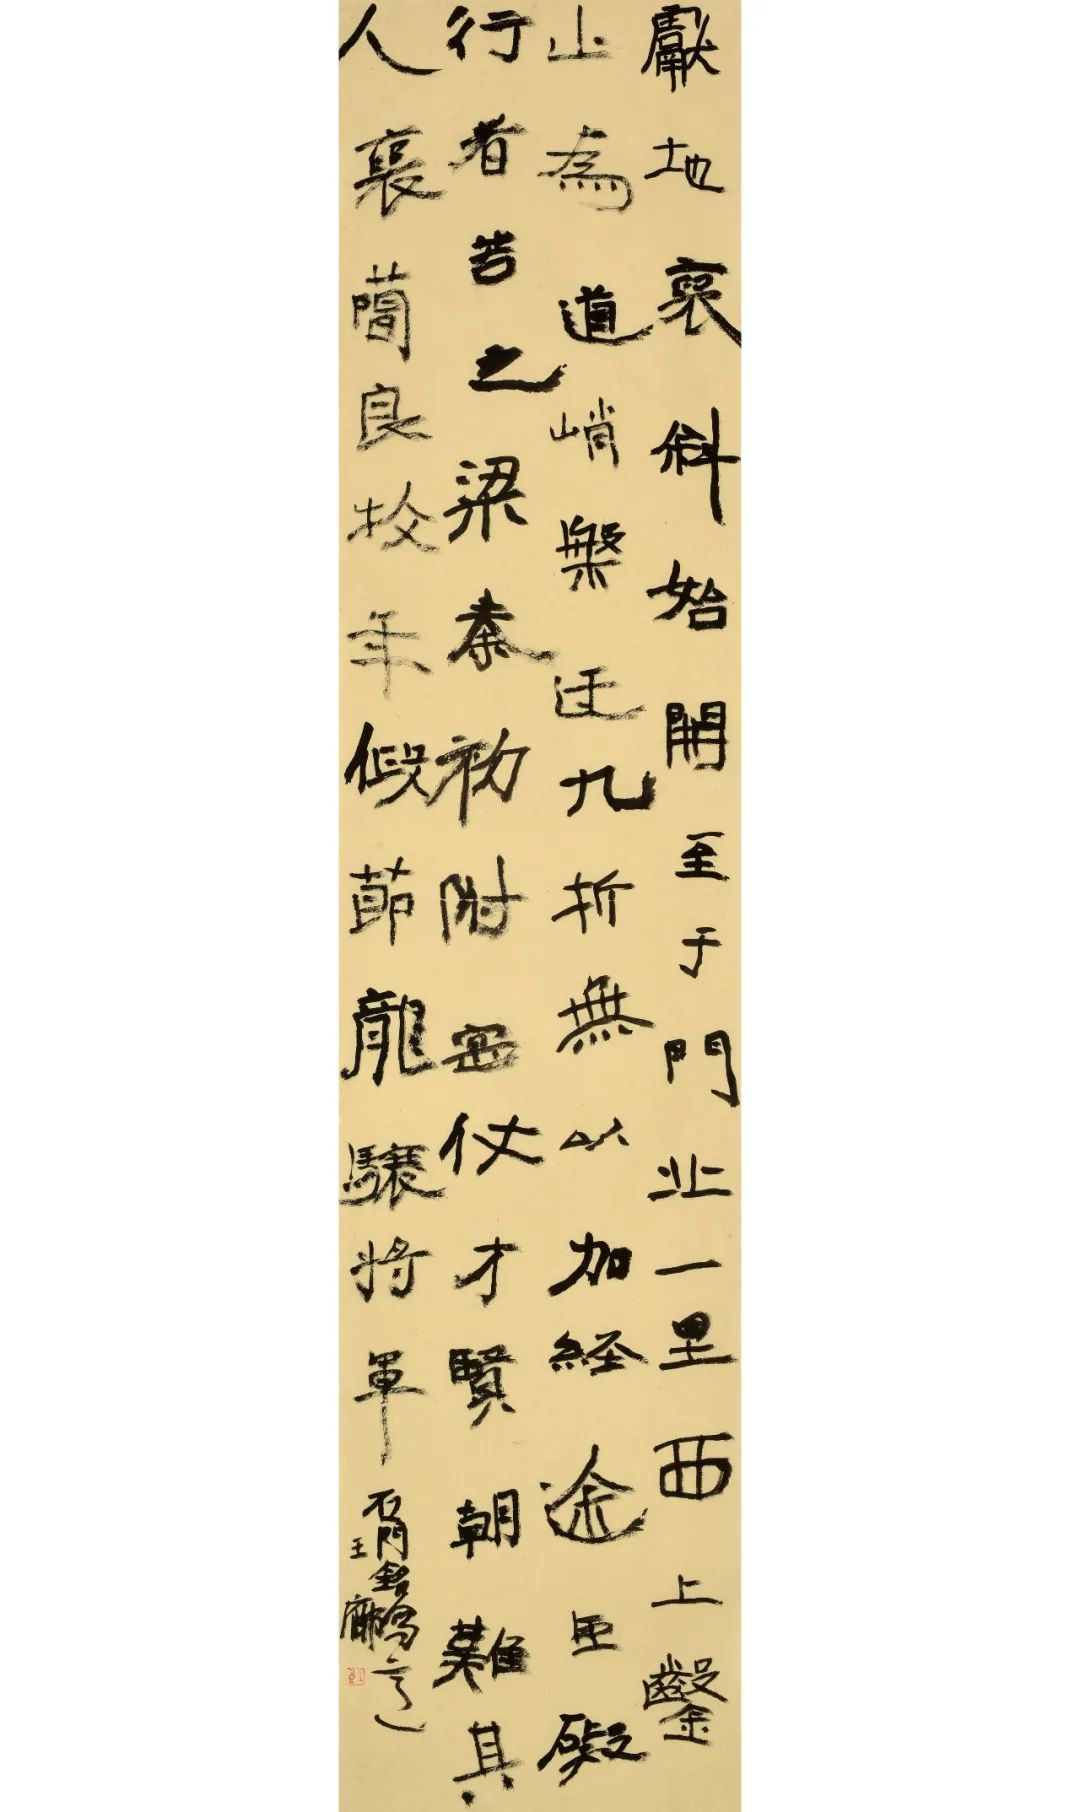 獻地褒斜始開至于門北一里西上鑿
山為道峭槃迂九折無以加経途巨礙
行者苦之梁秦初附寔仗才賢朝難其
人褒蕳良牧年假節龍驤将軍
石門銘
王